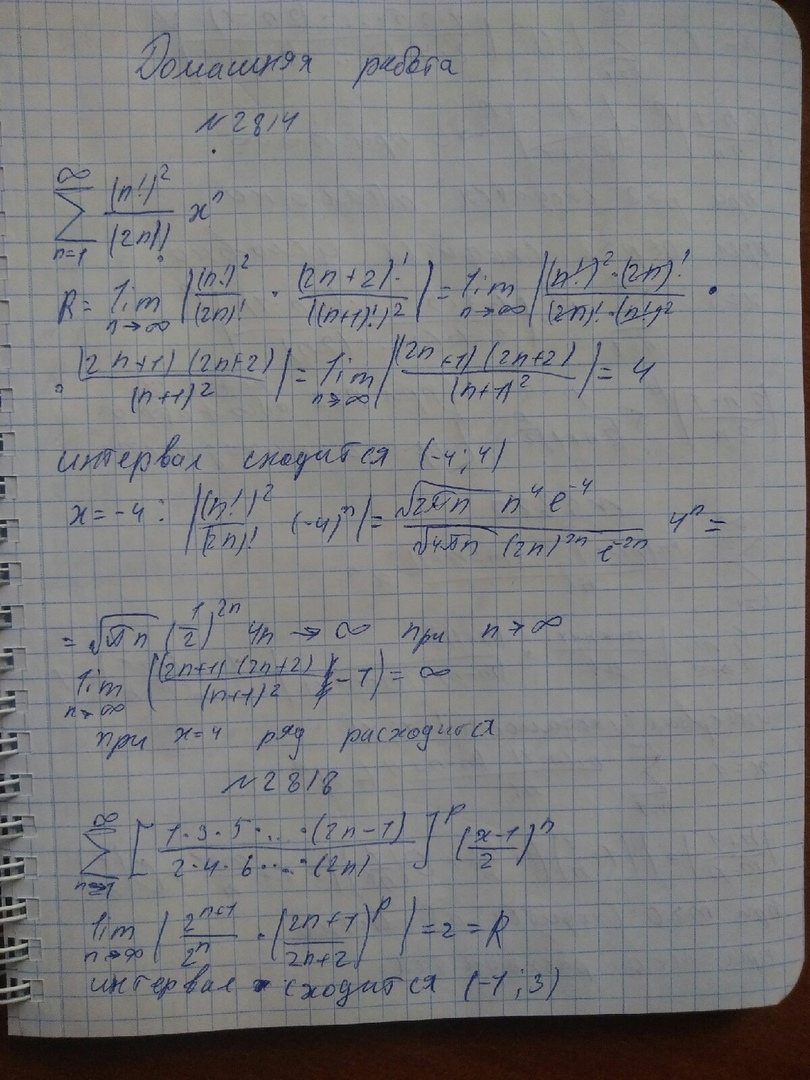 Домашняя работа
№2814
∑_{n=1}^{∞} (n!)²/(2n)! xⁿ
R = lim_{n→∞} |(n!)²/(2n)! · (2n+2)!/((n+1)!)²| = lim_{n→∞} |(n!)²·(2n)!/(2n)!·(n!)² ·
· (2n+1)(2n+2)/(n+1)²| = lim_{n→∞} |(2n+1)(2n+2)/(n+1)²| = 4
интервал сходится (-4; 4)
x = -4 : |(n!)²/(2n)! (-4)ⁿ| = √(2πn) n⁴ e⁻⁴/√(4πn) (2n)²ⁿ e⁻²ⁿ 4ⁿ =
= √(πn) (1/2)²ⁿ 4n → ∞ при n → ∞
lim_{n→∞} ((2n+1)(2n+2)/(n+1)² - 1) = ∞
при x=4 ряд расходится
№2818
∑_{n=1}^{∞} [1·3·5·...·(2n-1)/2·4·6·...·(2n)]^p ((x-1)/2)ⁿ
lim_{n→∞} |2ⁿ⁺¹/2ⁿ · ((2n+1)/(2n+2))^p| = 2 = R
интервал сходится (-1; 3)